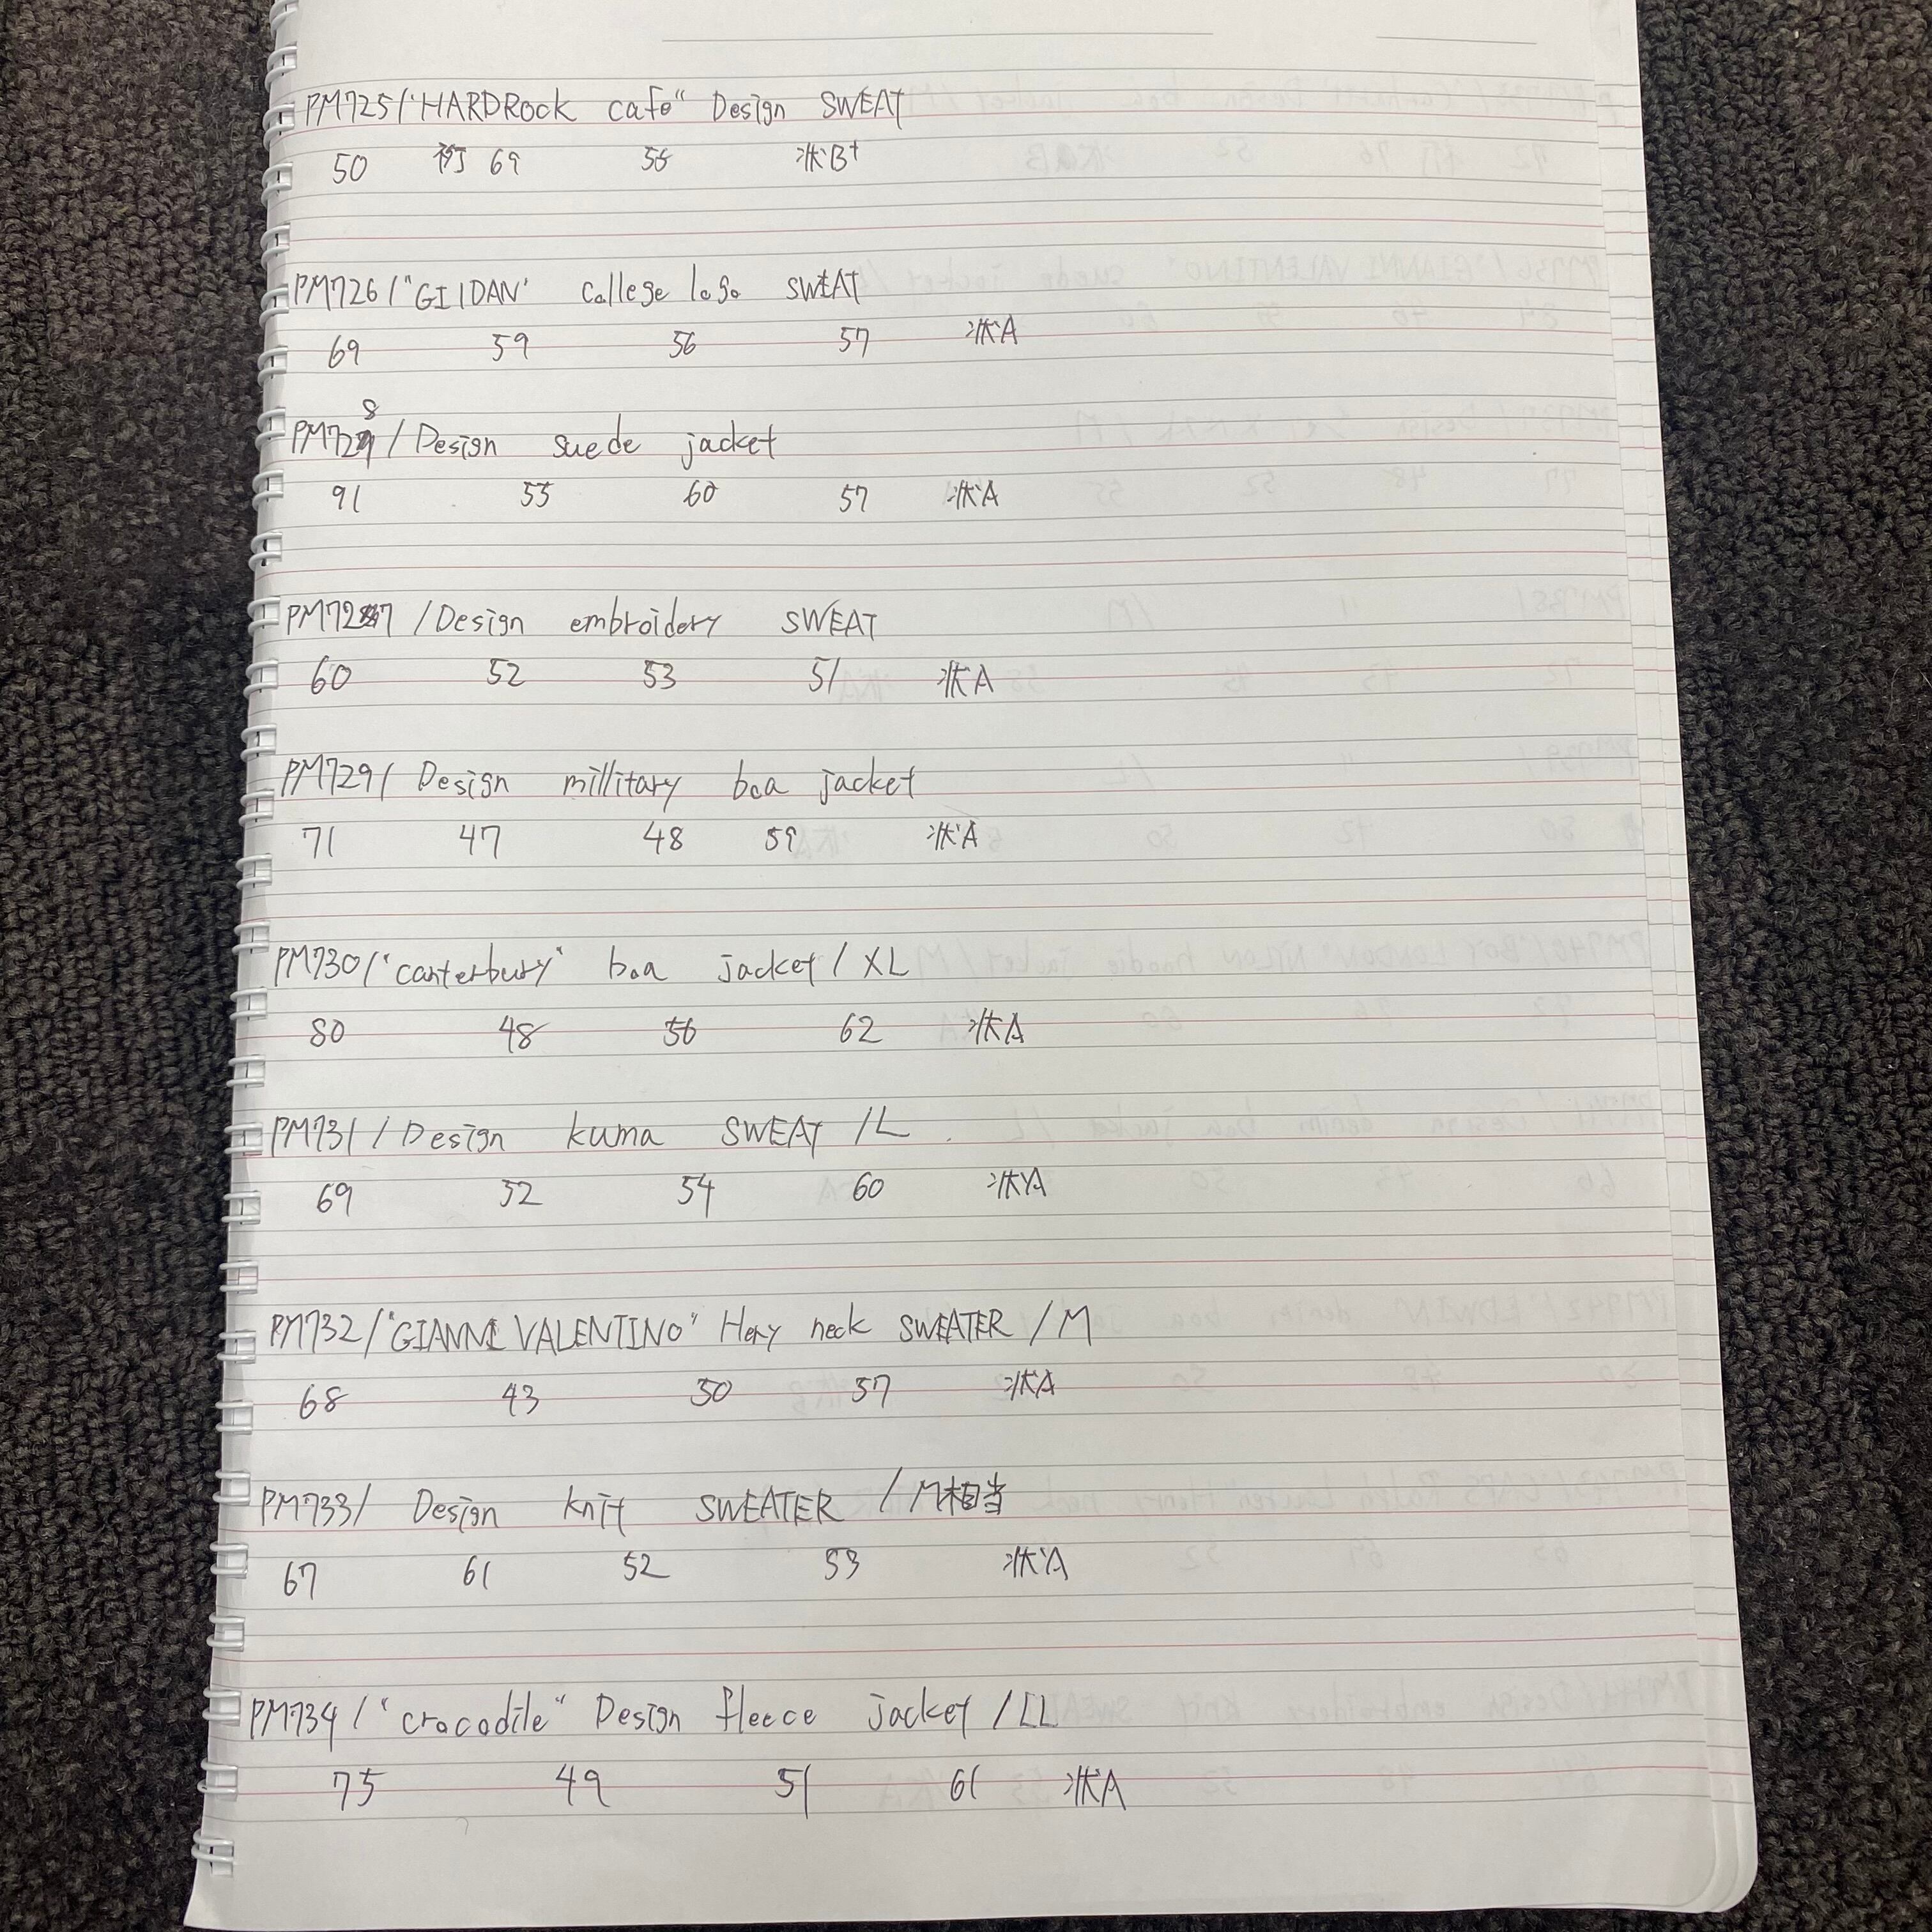 PM725/"HARDRock cafe" Design SWEAT
50 裄 69 56 状B+
PM726/"GIlDAN" college logo SWEAT
69 59 56 57 状A
PM728/Design suede jacket
91 55 60 57 状A
PM727/Design embroidery SWEAT
60 52 53 51 状A
PM729/Design millitary boa jacket
71 47 48 59 状A
PM730/"canterbury" boa jacket/XL
80 48 56 62 状A
PM731/Design kuma SWEAT/L
69 52 54 60 状A
PM732/"GIANNI VALENTINO" Heny neck SWEATER/M
68 43 50 57 状A
PM733/Design knit SWEATER/M相当
67 61 52 53 状A
PM734/"crocodile" Design fleece jacket/LL
75 49 51 61 状A